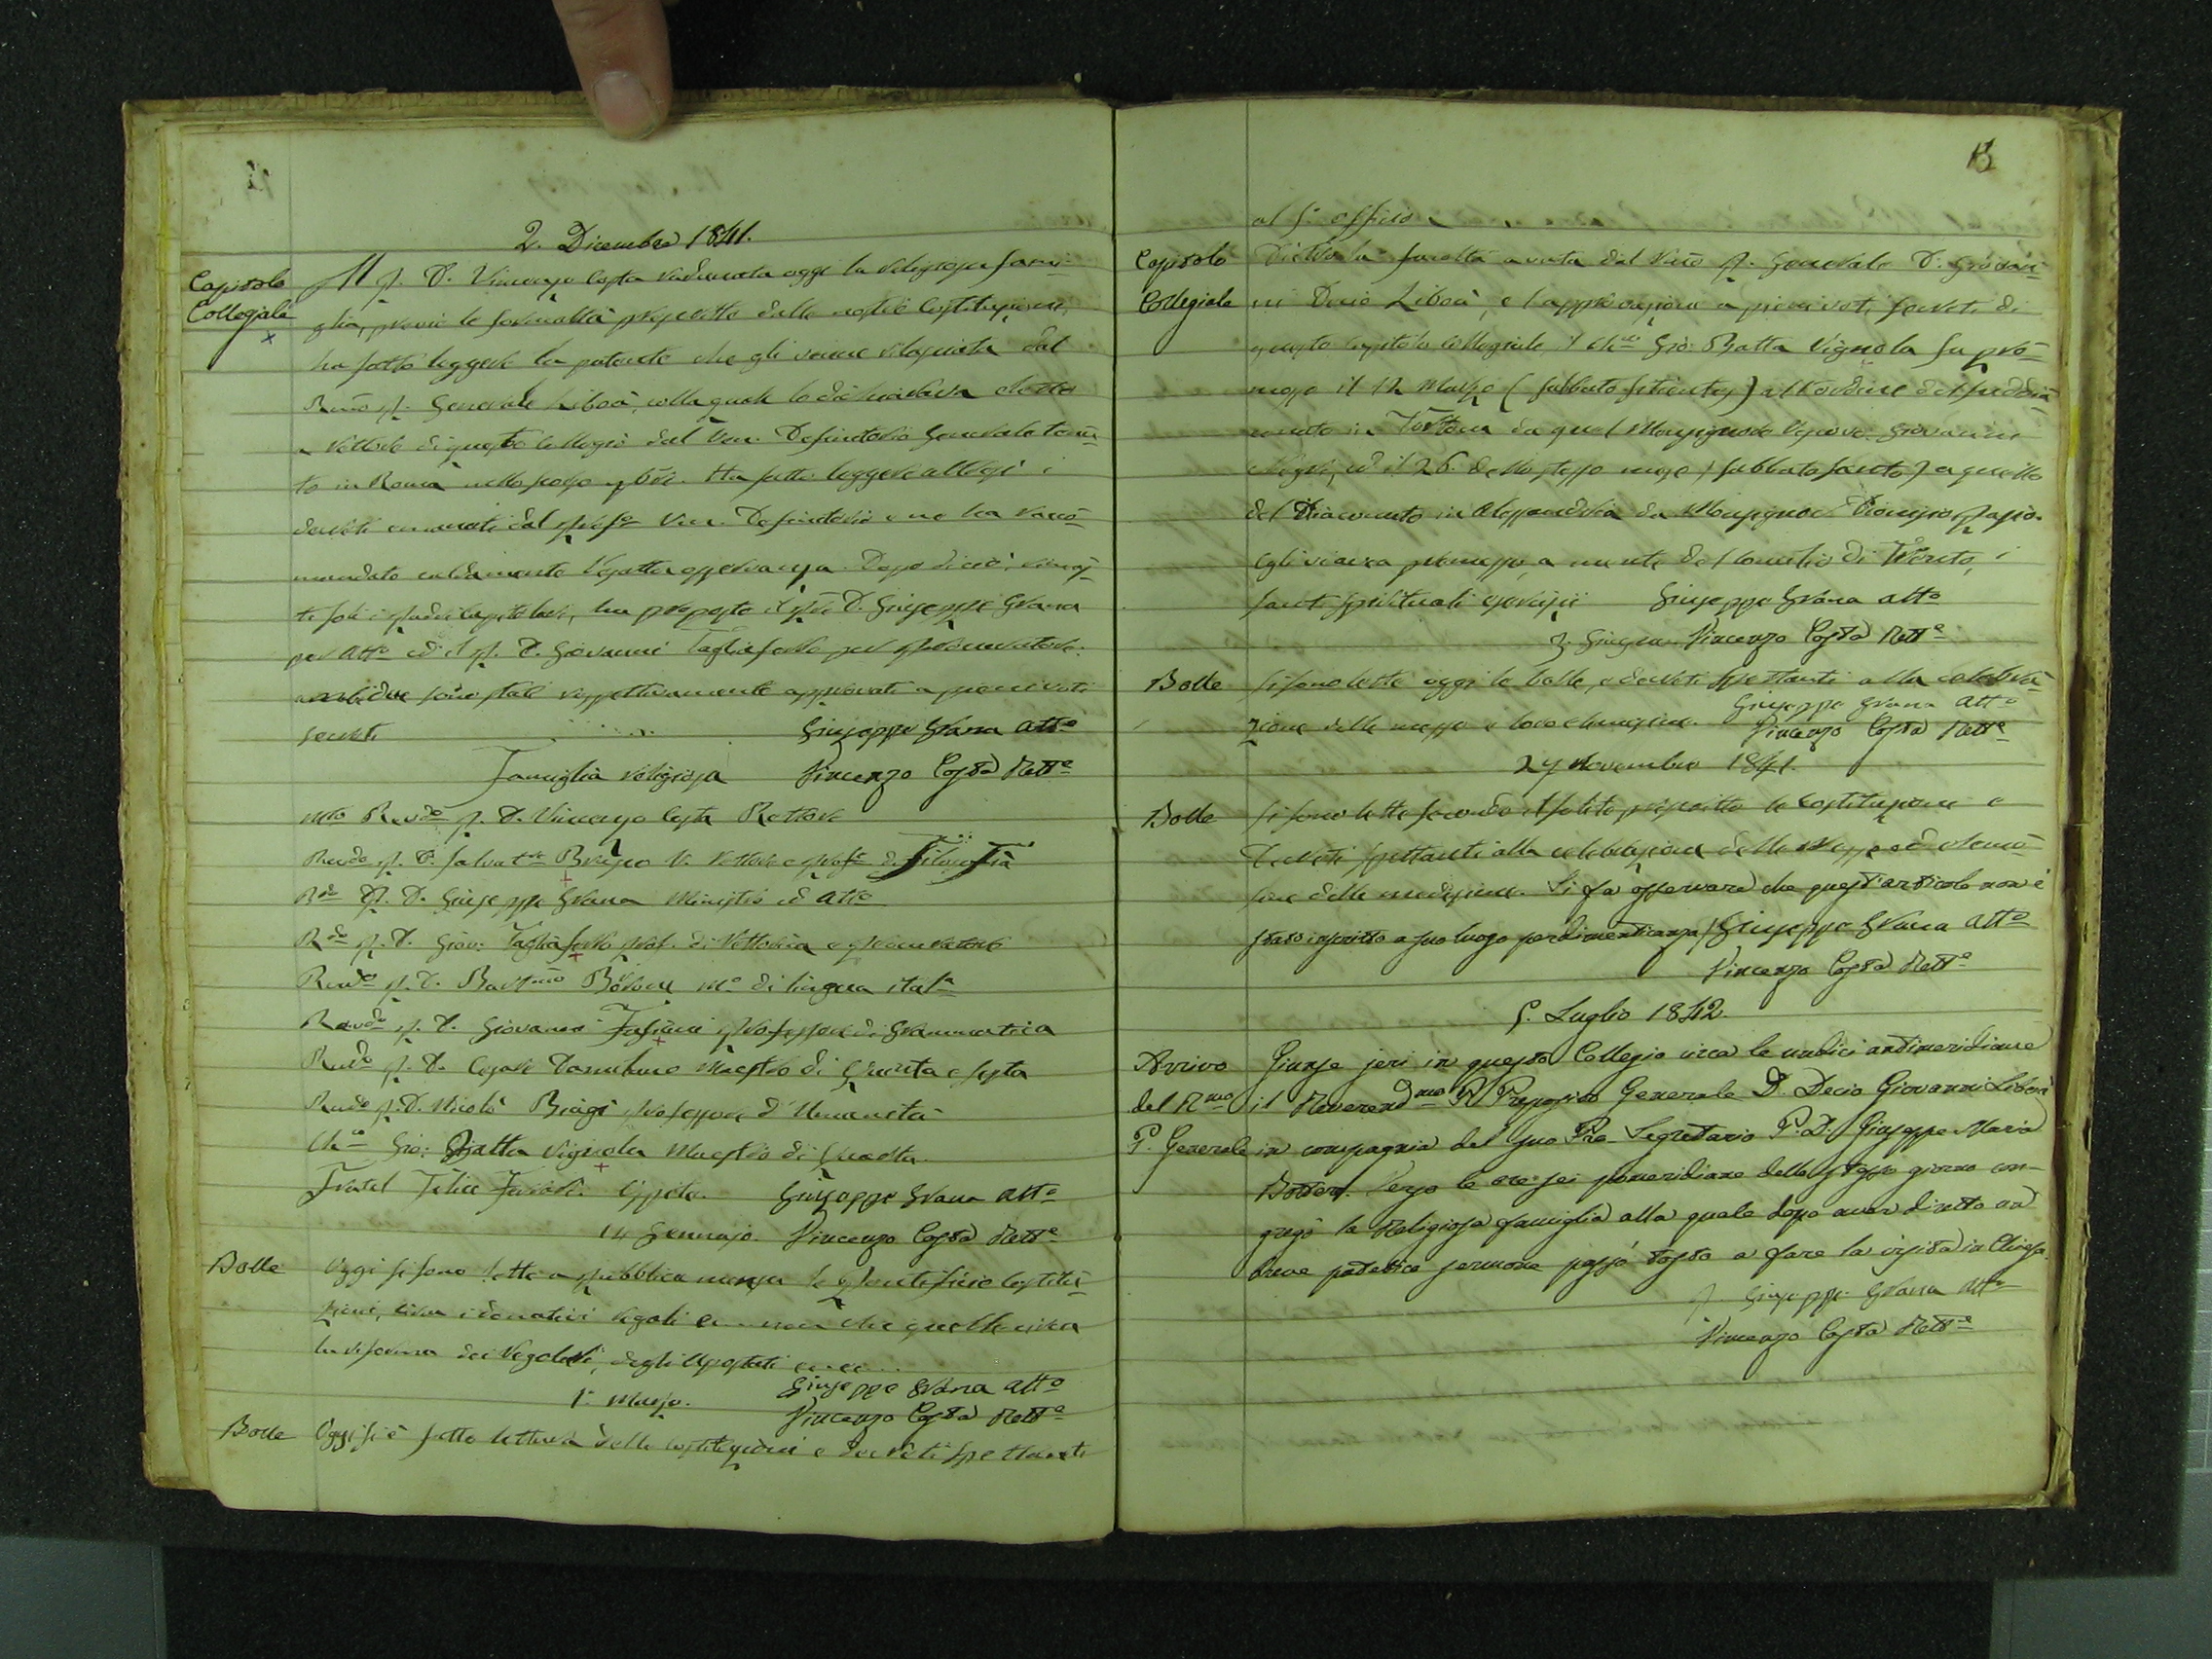 2. Dicembre 1841.
Capitolo
Collegiale
Il P. D. Vincenzo Costa radunata oggi la religiosa fami-
glia, previe le formalità prescritte dalle nostre Costituzioni,
ha fatto leggere la patente che gli venne rilasciata dal
Rmo P. Generale Libois, colla quale lo dichiarava eletto
a Rettore di questo collegio dal Ven. Definitorio Generale tenu-
to in Roma nello scorso 7bre. Ha fatto leggere altresì i
decreti emanati dal prefo Ven. Definitorio e ne ha racco-
mandato caldamente l'esatta osservanza. Dopo di ciò, rimas-
ti soli i padri capitolari, ha proposto il pre D. Giuseppe Grana
per Atto ed il P. D. Giovanni Tagliaferro per procuratore:
ambidue sono stati rispettivamente approvati a pieni voti
secreti
Giuseppe Grana Atto
Famiglia religiosa Vincenzo Costa Rette
Mto Revdo P. D. Vincenzo Costa Rettore
Revdo P. D. Salvatre V. Rettore e profe di Filosofia
Rdo P. D. Giuseppe Grana Ministro ed Atto
Rdo P. D. Giov: Tagliaferro prof. di Rettorica e procuratore
Revdo P. D. Mo di lingua itala
Revdo P. D. Giovanni professore di Grammatica
Revdo P. D. Cesare Maestro di Quinta e sesta
Revdo P. D. Nicolò Biagi professore d'Umanità
Chco Gio: Batta Vignola Maestro di Quarta
Fratel Felice Ospite. Giuseppe Grana Atto
14 Gennajo. Vincenzo Costa Rette
Bolle Oggi si sono lette a pubblica mensa le Pontificie Costitu-
zioni, circa i donativi regali non che quelle circa
la riforma dei Regolari, degli Apostati
Giuseppe Grana Atto
1º Marzo. Vincenzo Costa Rette
Bolle Oggi si è fatta lettura delle costituzioni e decreti spettanti
13
al S. officio
Capitolo
Collegiale
Dietro la facoltà avuta dal Rmo P. Generale D. Giovan-
ni Decio Libois, e l'approvazione a pieni voti secreti di
questo capitolo collegiale il Chco Gio: Batta Vignola fu pro-
mosso il 12 Marzo (sabbato sitientes) all'ordine del suddia-
conato in Tortona da quel Monsignore Vescovo Giovanni
Negri, ed il 26. dello stesso mese (sabbato santo) a quello
del Diaconato in Alessandria da Monsignor Dionigio Pasio.
Egli vi aveva premesso, a mente del Concilio di Trento, i
santi spirituali esercizii Giuseppe Grana Atto
3 Giugno Vincenzo Costa Rette
Bolle Si sono lette oggi le bolle, e decreti spettanti alla celebra-
zione delle messe e loro elemosine. Giuseppe Grana Atto
Vincenzo Costa Rette
27 Novembre 1841.
Bolle Si sono lette secondo il solito prescritto le Costituzioni e
Decreti spettanti alla celebrazione delle Messe ed elemo-
sine delle medesime. Si fa osservare che quest'articolo non è
stato inscritto a suo luogo per dimenticanza / Giuseppe Grana Atto
Vincenzo Costa Rette
5. Luglio 1842.
Arrivo
del Rmo
P. Generale
Giunse jeri in questo Collegio circa le undici antimeridiane
il Reverendmo P. Preposito Generale D. Decio Giovanni Libois
in compagnia del suo Pro-Segretario P. D. Giuseppe Maria
Verso le ore sei pomeridiane dello stesso giorno con-
gregò la Religiosa famiglia alla quale dopo aver diretto un
breve patetico sermone passò tosto a fare la visita in Chiesa
P. Giuseppe Grana Atto
Vincenzo Costa Rette